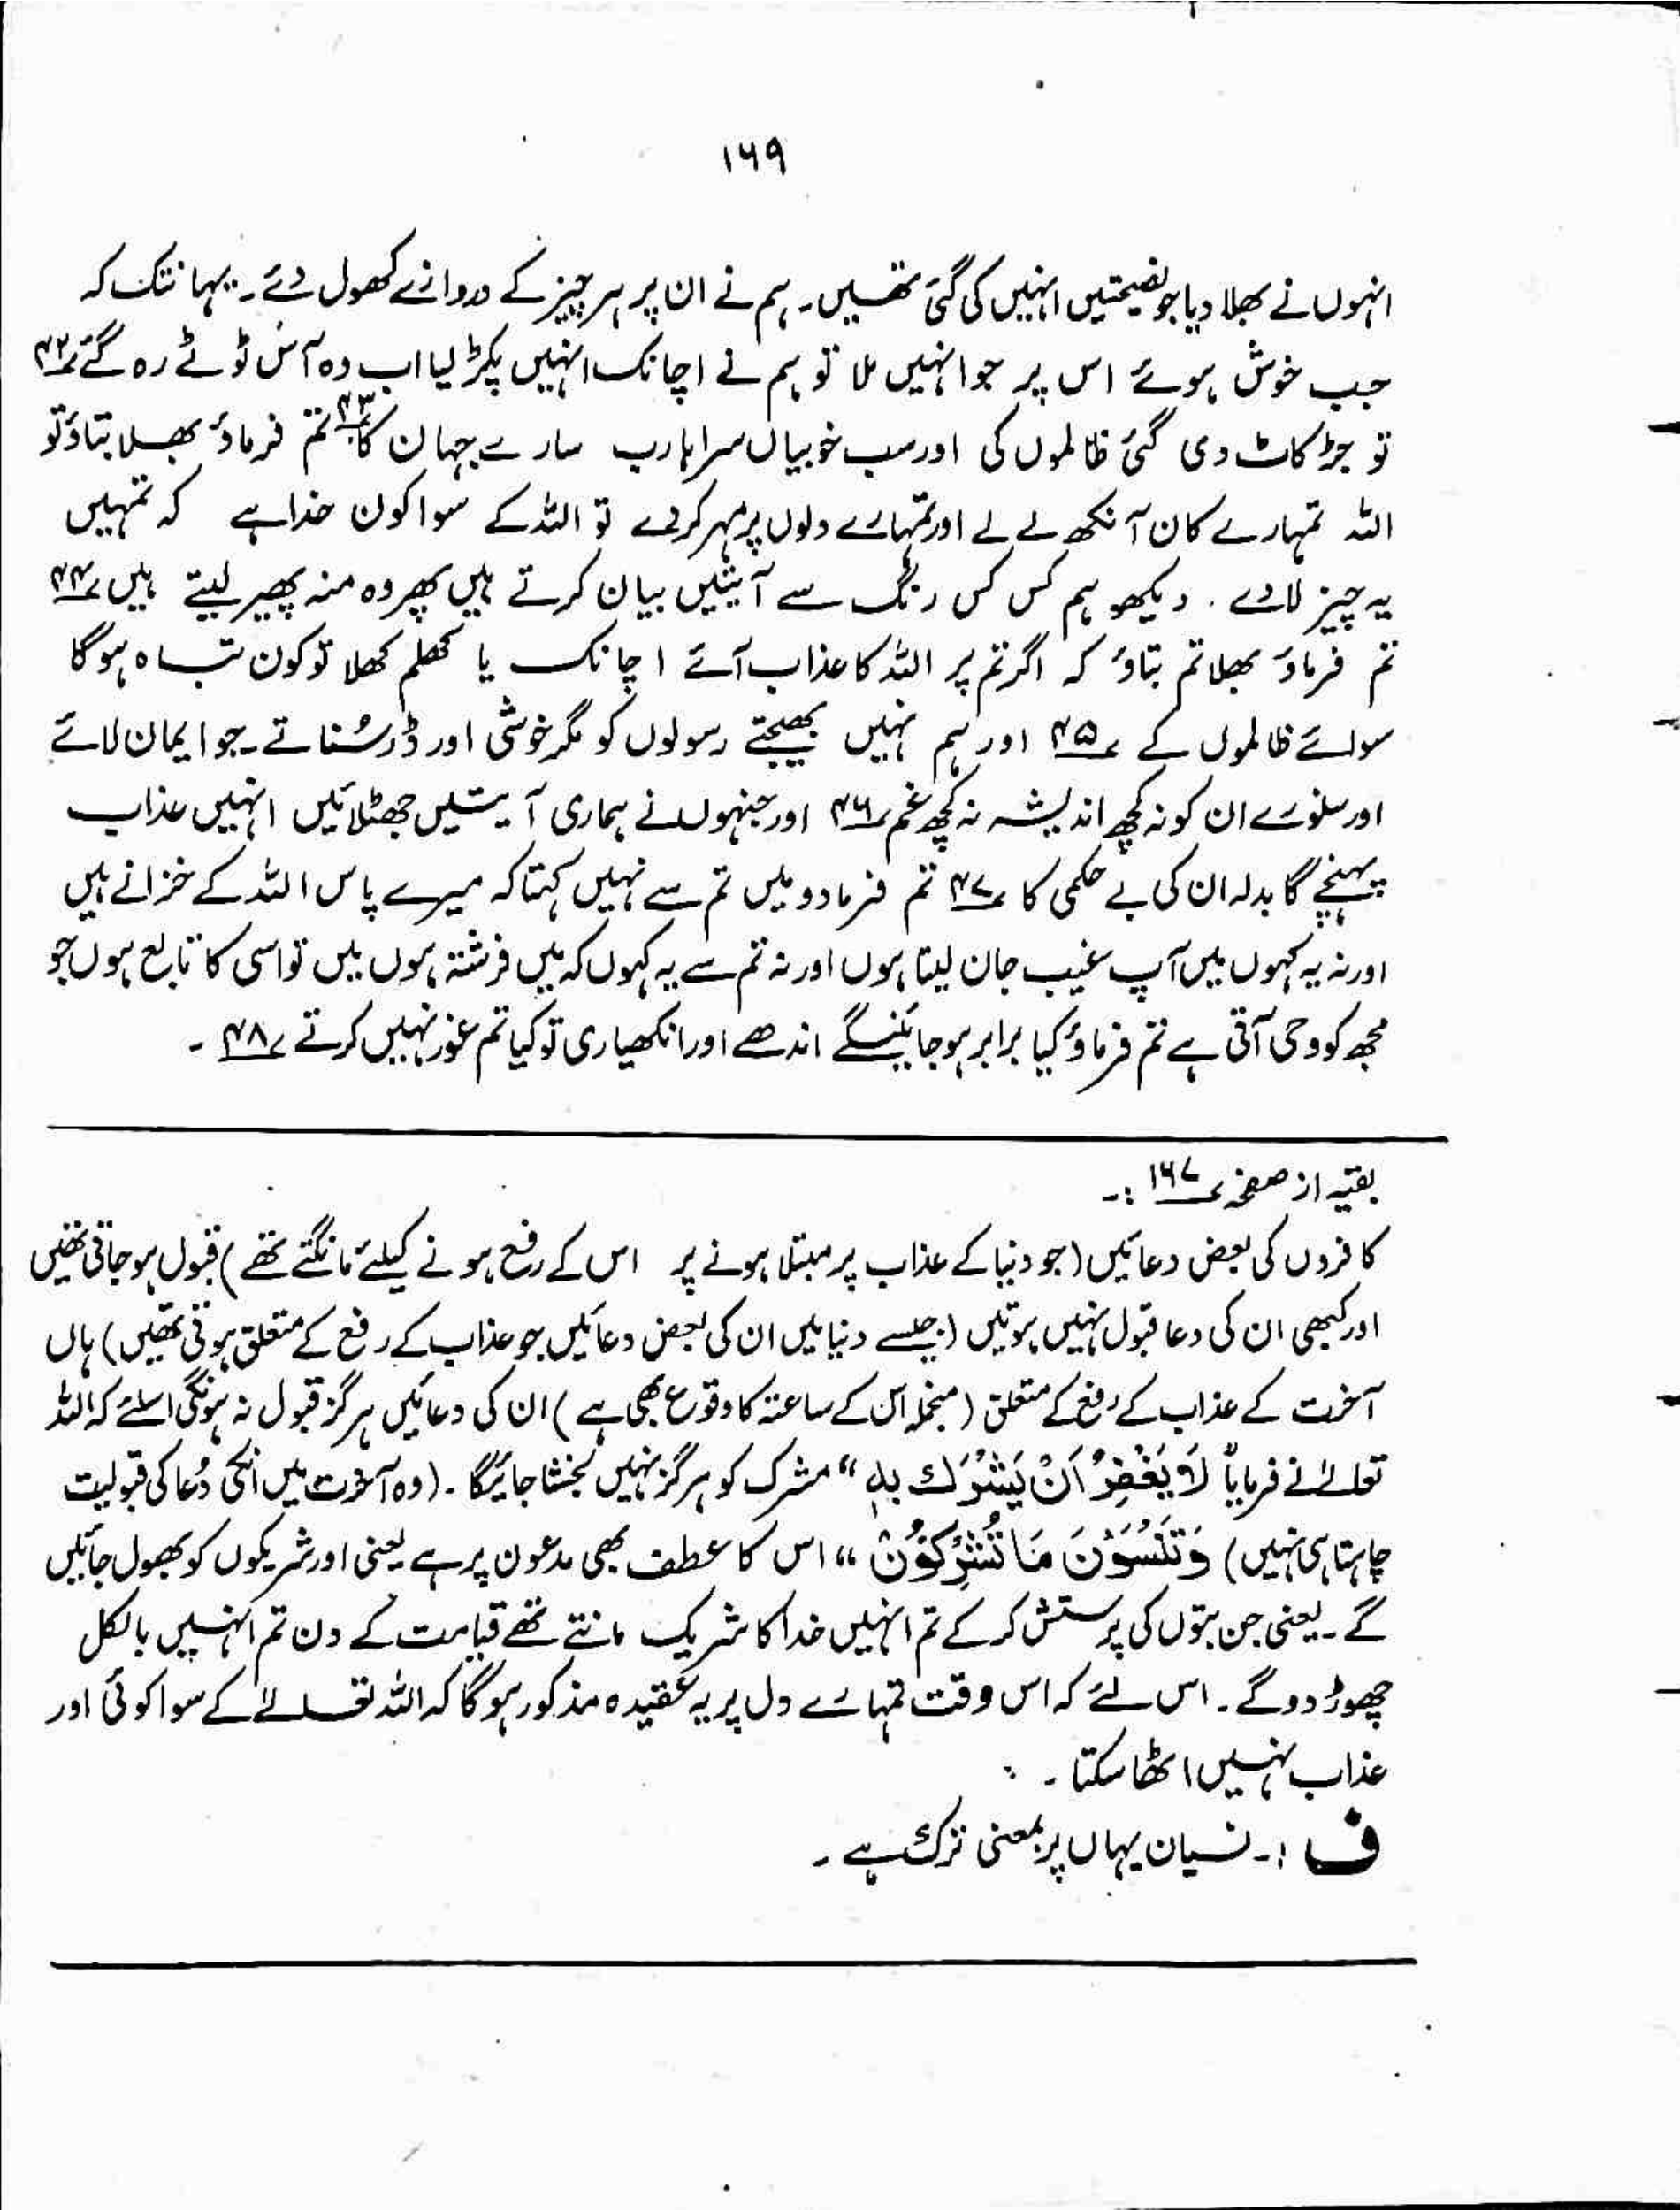 ۱۶۹
انہوں نے بھلا دیا جو نصیحتیں انہیں کی گئی تھیں۔ ہم نے ان پر ہر چیز کے دروازے کھول دئے۔ یہانتک کہ
جب خوش ہوئے اس پر جو انہیں ملا تو ہم نے اچانک انہیں پکڑ لیا اب وہ آس ٹوٹے رہ گئے ۴۳؎
تو جڑ کاٹ دی گئی ظالموں کی اور سب خوبیاں سراہا رب سارے جہان کا ۴۳؎ تم فرماؤ بھلا بتاؤ تو
اللہ تمہارے کان آنکھ لے لے اور تمہارے دلوں پر مہر کردے تو اللہ کے سوا کون خدا ہے کہ تمہیں
یہ چیز لادے . دیکھو ہم کس کس رنگ سے آیتیں بیان کرتے ہیں پھر وہ منہ پھیر لیتے ہیں ۴۴؎
تم فرماؤ بھلا تم بتاؤ کہ اگر تم پر اللہ کا عذاب آئے اچانک یا کھلم کھلا تو کون تباہ ہوگا
سوائے ظالموں کے ۴۵؎ اور ہم نہیں بھیجتے رسولوں کو مگر خوشی اور ڈر سُناتے ۔ جو ایمان لائے
اور سنورے ان کو نہ کچھ اندیشہ نہ کچھ غم ۴۶؎ اور جنہوں نے ہماری آیتیں جھٹلائیں انہیں عذاب
پہنچے گا بدلہ ان کی بے حکمی کا ۴۷؎ تم فرمادو میں تم سے نہیں کہتا کہ میرے پاس اللہ کے خزانے ہیں
اور نہ یہ کہوں میں آپ غیب جان لیتا ہوں اور نہ تم سے یہ کہوں کہ میں فرشتہ ہوں میں تو اسی کا تابع ہوں جو
مجھ کو وحی آتی ہے تم فرماؤ کیا برابر ہوجائینگے اندھے اور انکھیاری تو کیا تم غور نہیں کرتے ۴۸؎ ۔
بقیہ از صفحہ ۱۶۷ :-
کافروں کی بعض دعائیں (جو دنیا کے عذاب پر مبتلا ہونے پر اس کے رفع ہونے کیلئے مانگتے تھے) قبول ہوجاتی تھیں
اور کبھی ان کی دعا قبول نہیں ہوتیں (جیسے دنیا میں ان کی بعض دعائیں جو عذاب کے رفع کے متعلق ہوتی تھیں) ہاں
آخرت کے عذاب کے رفع کے متعلق (منجملہ اس کے ساعتہ کا وقوع بھی ہے) ان کی دعائیں ہرگز قبول نہ ہونگی اسلئے کہ اللہ
تعالیٰ نے فرمایا "لَا يَغْفِرُ اَنْ يُّشْرَكَ بِهٖ“ مشرک کو ہرگز نہیں بخشا جائیگا ۔ (وہ آخرت میں انکی دُعا کی قبولیت
چاہتا ہی نہیں) وَتَنْسَوْنَ مَا تُشْرِكُوْنَ “ اس کا عطف بھی مدعون پر ہے یعنی اور شریکوں کو بھول جائیں
گے ۔ یعنی جن بتوں کی پرستش کرکے تم انہیں خدا کا شریک مانتے تھے قیامت کے دن تم انہیں بالکل
چھوڑ دو گے ۔ اس لئے کہ اس وقت تمہارے دل پر یہ عقیدہ مذکور ہوگا کہ اللہ تعالےٰ کے سوا کوئی اور
عذاب نہیں اٹھا سکتا ۔
ف :- نسیان یہاں پر بمعنی ترک ہے ۔